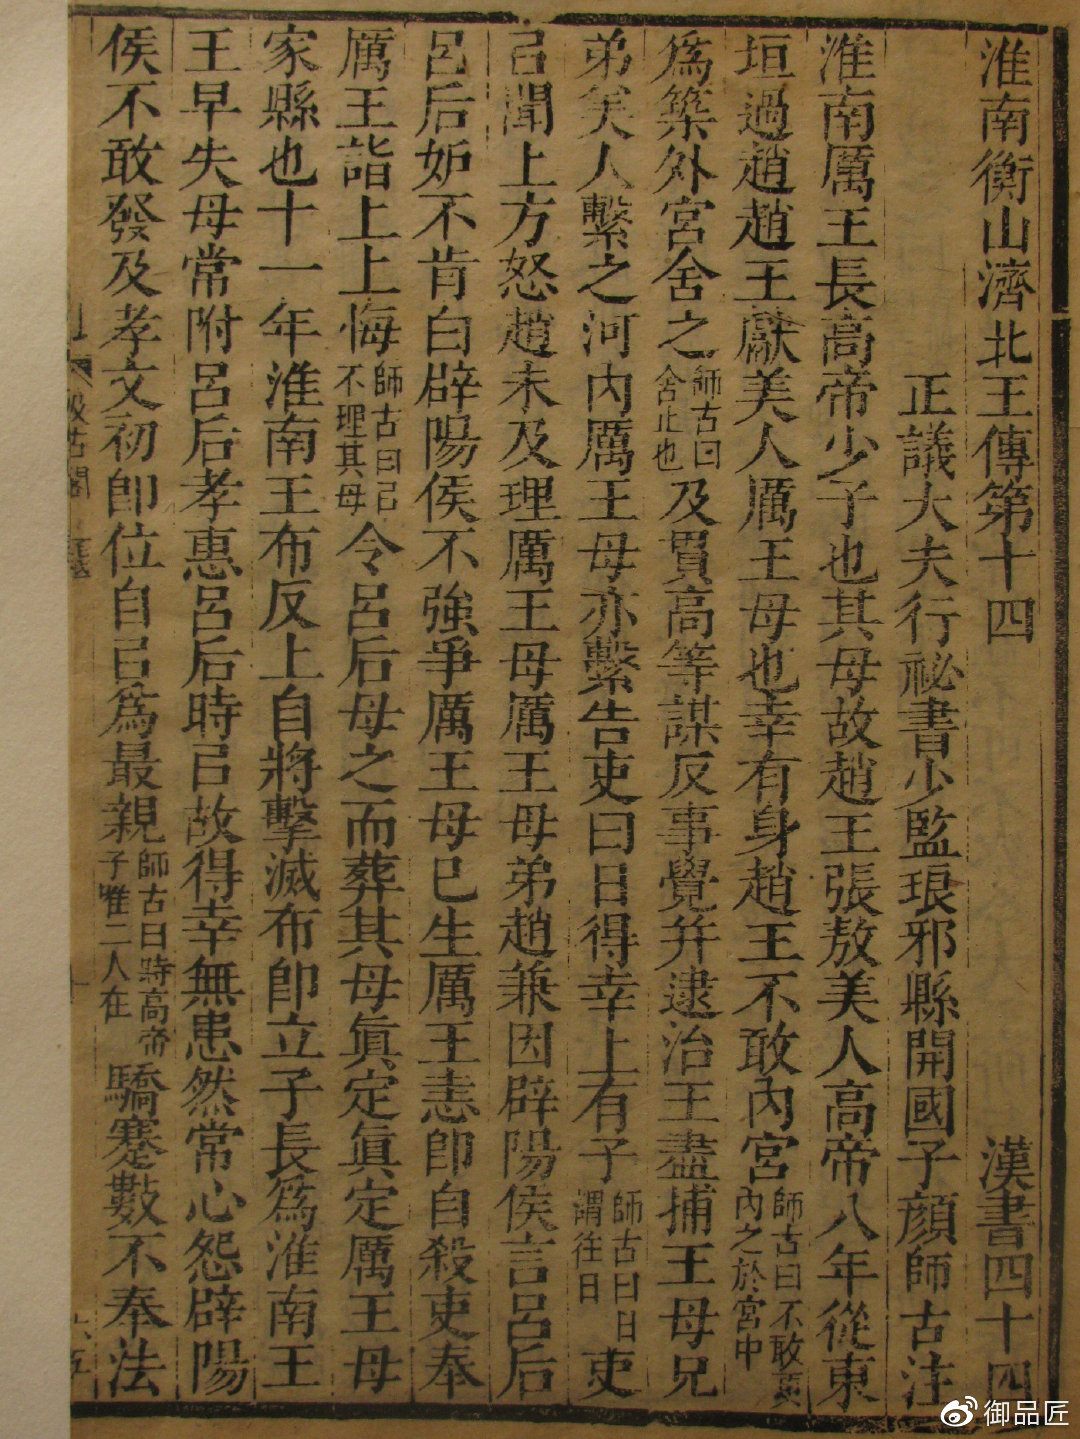 淮南衡山濟北王傳第十四 漢書四十四
正議大夫行祕書少監琅邪縣開國子顏師古注
淮南厲王長高帝少子也其母故趙王張敖美人高帝八年從東
垣過趙趙王獻美人厲王母也幸有身趙王不敢內宮師古曰不敢更內之於宮中
為築外宮舍之師古曰舍止也及貫高等謀反事覺并逮治王盡捕王母兄
弟美人繫之河內厲王母亦繫告吏曰日得幸上有子師古曰日謂往日吏
㠯聞上方怒趙未及理厲王母厲王母弟趙兼因辟陽侯言呂后
呂后妒不肯白辟陽侯不強爭厲王母已生厲王恚即自殺吏奉
厲王詣上上悔師古曰㠯不理其母令呂后母之而葬其母真定真定厲王母
家縣也十一年淮南王布反上自將擊滅布即立子長為淮南王
王早失母常附呂后孝惠呂后時㠯故得幸無患然常心怨辟陽
侯不敢發及孝文初即位自㠯為最親師古曰時高帝子唯二人在驕蹇數不奉法
汲古閣
御品匠